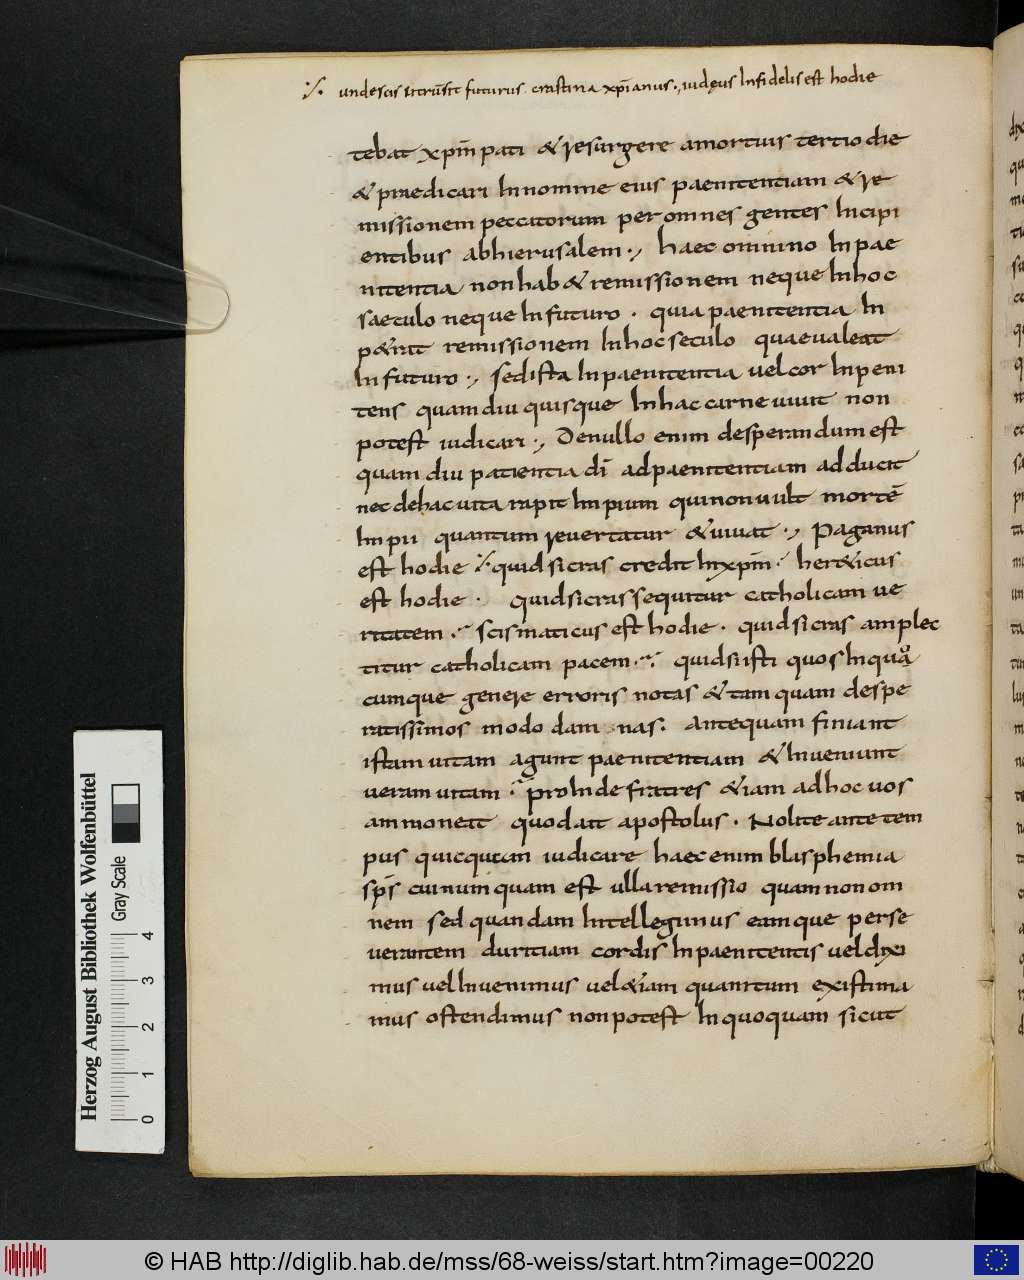 ⁒ unde scis utrū sit futurus crastina xp̄ianus·, iudęus Infidelis est hodie
tebat xp̄m pati & resurgere amortuis tertio die
& praedicari In nomine eius paenitentiam & re
missionem peccatorum per omnes gentes Incipi
entibus abhierusalem·, haec omnino In pae
nitentia non hab& remissionem neque In hoc
saeculo neque In futuro · quia paenitentia In
p&rat remissionem In hoc seculo quae ualeat
In futuro·, sed ista In paenitentia uel cor In peni
tens quam diu quisque In hac carne uiuit non
potest iudicari·, De nullo enim desperandum est
quam diu patientia dī ad paenitentiam adducit
nec de hac uita rapit Impium qui non uult mortē
Impii quantum reuertatur & uiuat·, Paganus
est hodie ⁒ quid si cras credit In xp̄m· her&icus
est hodie · Quid si cras sequitur catholicam ue
ritatem· scismaticus est hodie · quid si cras amplec
titur catholicam pacem· quid si isti quos In quo
cumque genere erroris notas & tam quam despe
ratissimos modo dam nas. Antequam finiant
istam uitam agunt paenitentiam & Inueniunt
ueram uitam· proInde fratres &iam ad hoc uos
ammoneat quod ait apostolus· Nolite ante tem
pus quicquam iudicare haec enim blasphemia
sp̄s cui numquam est ulla remissio quam non om
nem sed quandam Intelleginus eamque perse
uerantem duritiam cordis In paenitentis uel dixi
mus uel Inuenimus uel &iam quantum existima
mus ostendimus non potest In quoquam sicut
Herzog August Bibliothek Wolfenbüttel
Gray Scale
0 1 2 3 4
© HAB http://diglib.hab.de/mss/68-weiss/start.htm?image=00220